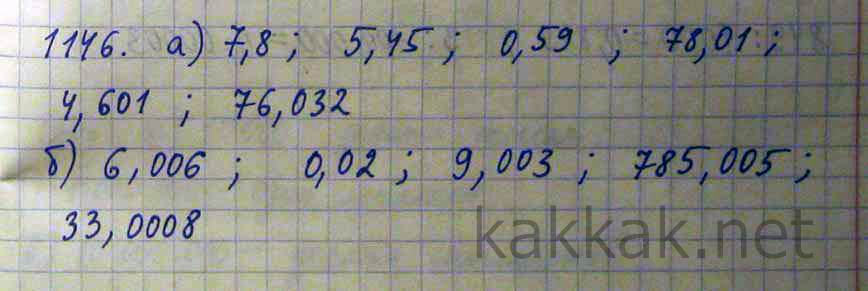 1146. а) 7,8 ; 5,45 ; 0,59 ; 78,01 ;
4,601 ; 76,032
б) 6,006 ; 0,02 ; 9,003 ; 785,005 ;
33,0008
kakkak.net